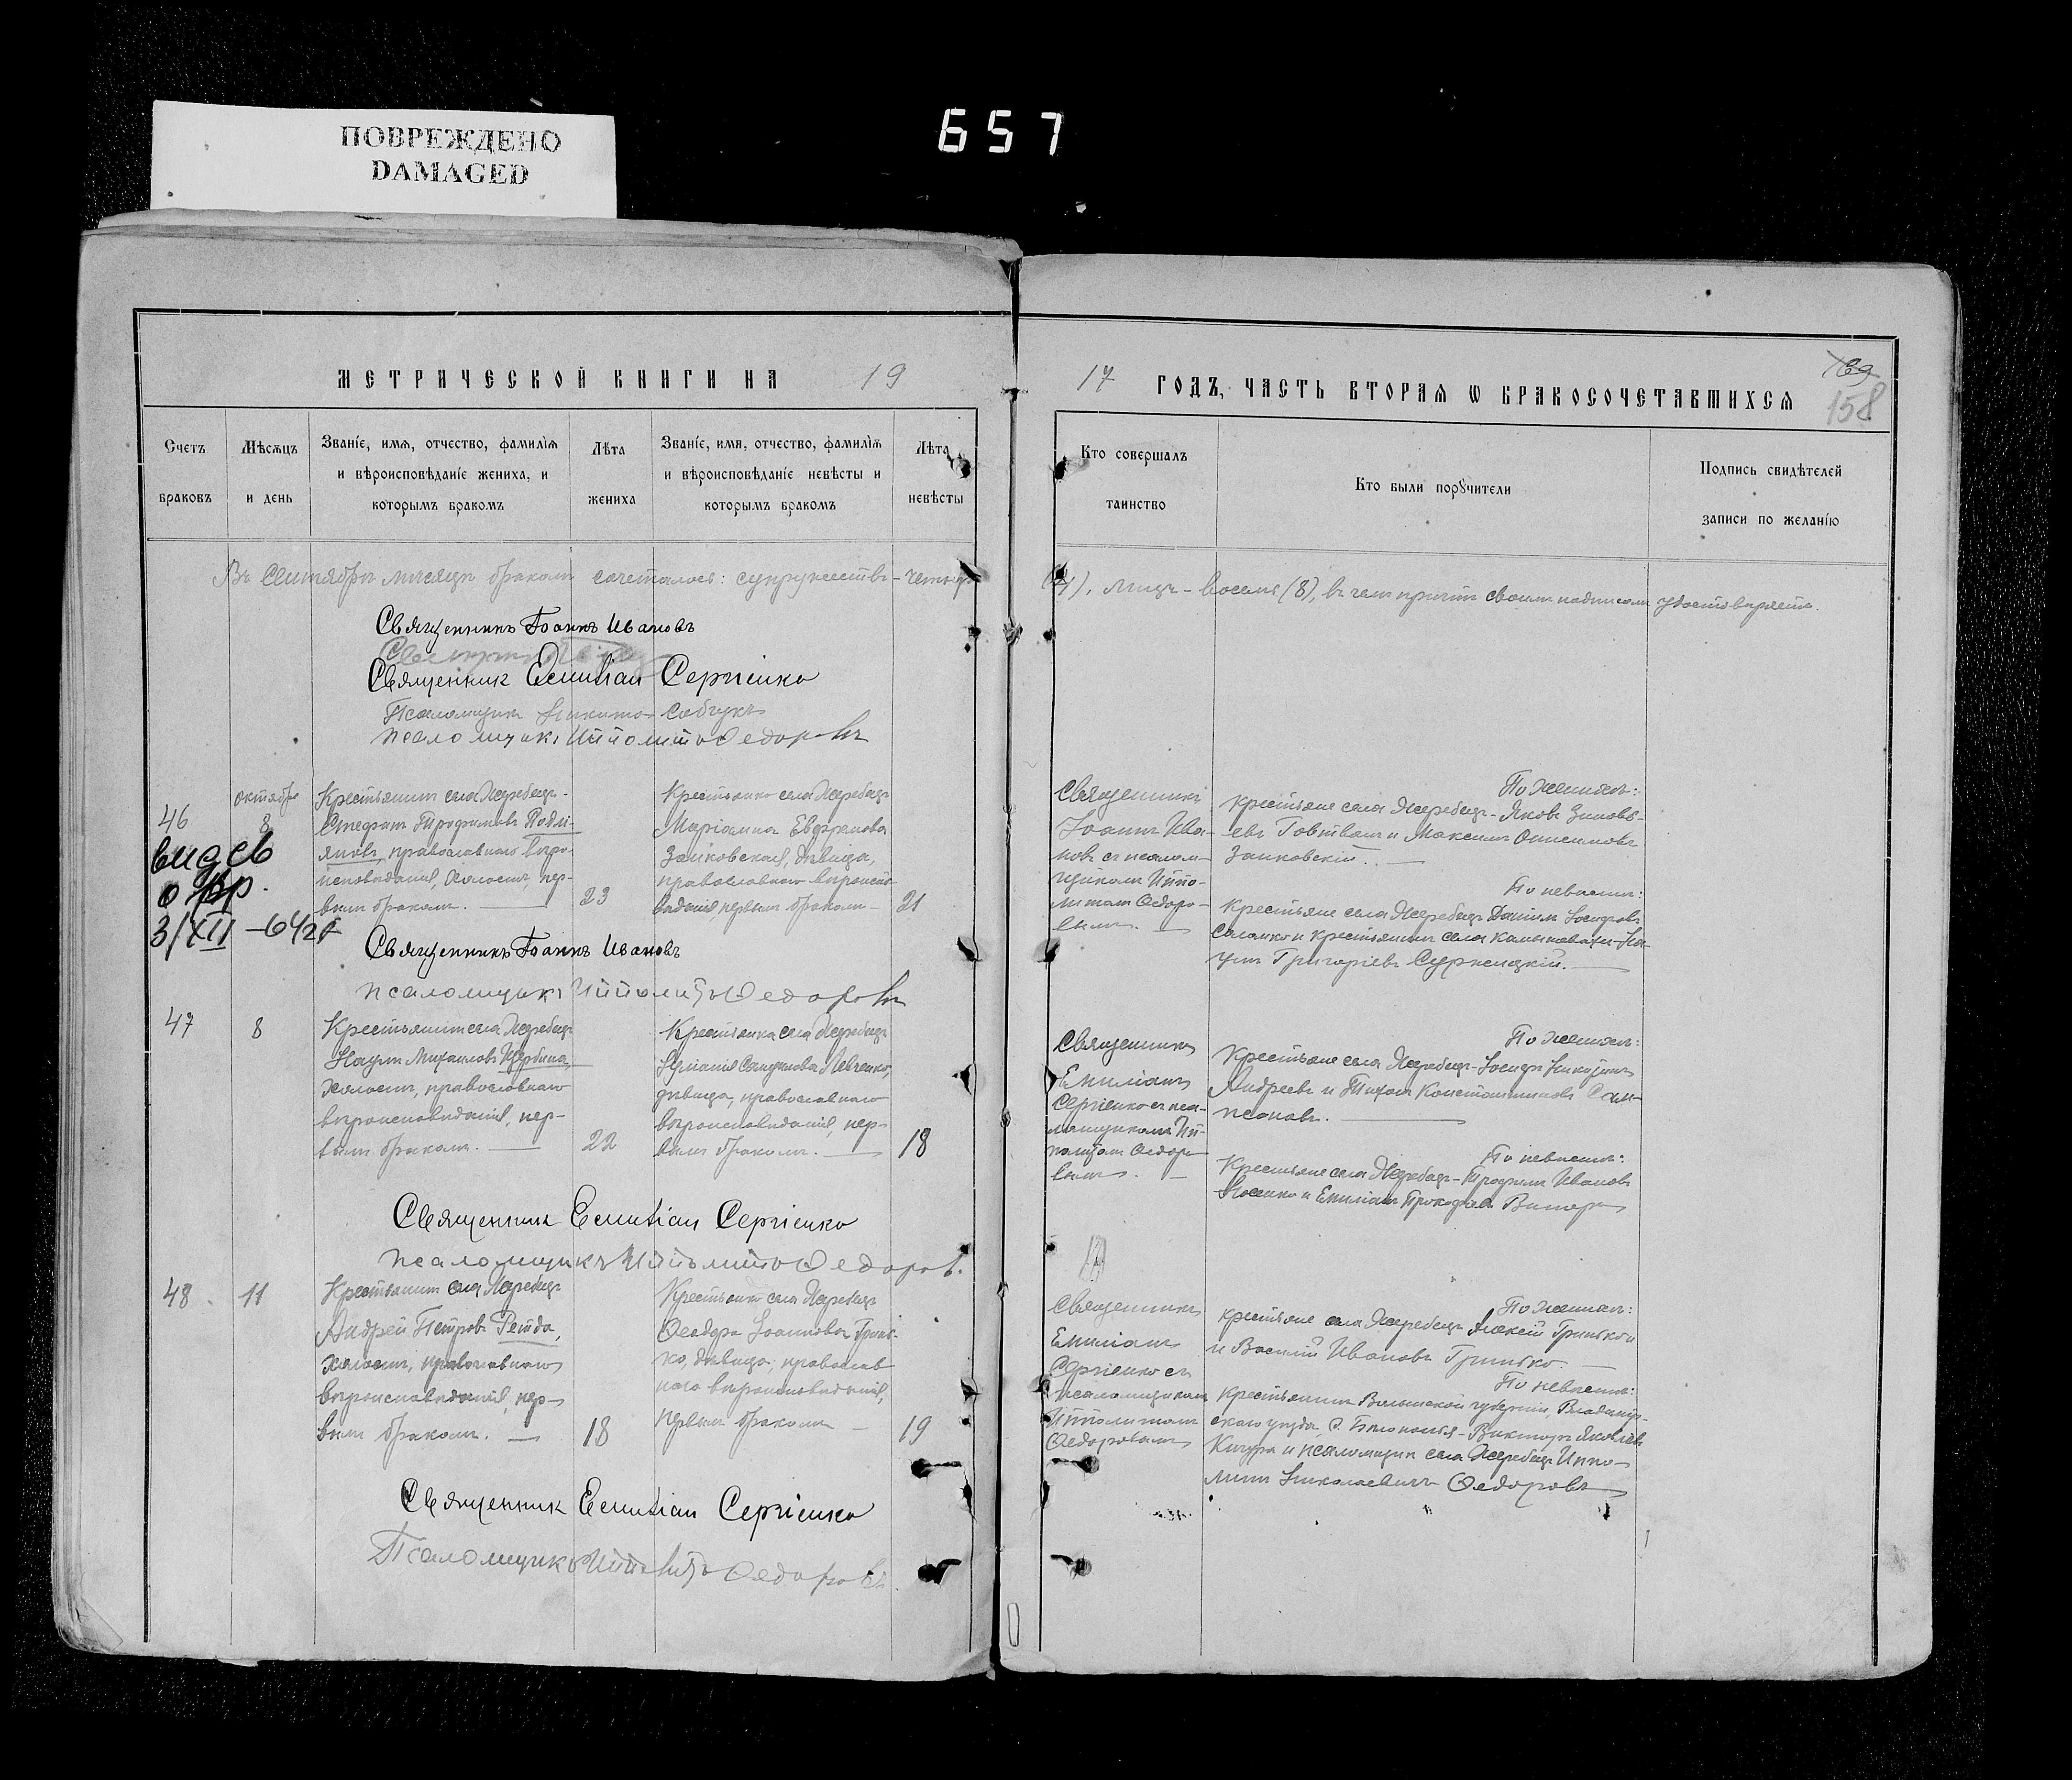 ПОВРЕЖДЕНО
DAMAGED
657
МЕТРИЧЕСКОЙ КНИГИ НА 19
17 ГОДЪ, ЧАСТЬ ВТОРАЯ Ѡ БРАКОСОЧЕТАВШИХСЯ
169
158
Счетъ
браковъ
Мѣсяцъ
и день
Званіе, имя, отчество, фамилія
и вѣроисповѣданіе жениха, и
которымъ бракомъ
Лѣта
жениха
Званіе, имя, отчество, фамилія
и вѣроисповѣданіе невѣсты и
которымъ бракомъ
Лѣта
невѣсты
Кто совершалъ
таинство
Кто были порꙋчители
Подпись свидѣтелей
записи по желанію
Въ Сентябрѣ мѣсяцѣ бракомъ сочеталось: супружествъ - четыре
(4), лицъ - восемь (8), въ чемъ причтъ своимъ подписомъ удостовѣряетъ.
Священникъ Іоаннъ Ивановъ
Священник Емиліан Сергіенко
Псаломщикъ Никита
псаломщикъ Ипполитъ Ѳедоровъ
46
октября
8
видсв
о бр.
3/XII - 642 г
Крестьянинъ села Жеребецъ -
Стефанъ Трофимовъ Подли-
яновъ, православнаго вѣро-
исповѣданія, холостъ, пер-
вымъ бракомъ.
23
Крестьянка села Жеребецъ
Маріанна Евфремова
Заиковская, дѣвица,
православнаго вѣроиспо-
вѣданія первымъ бракомъ
21
Священникъ
Іоаннъ Ива-
новъ съ псалом-
щикомъ Иппо-
литомъ Ѳедоро-
вымъ.
По женихѣ:
крестьяне села Жеребецъ - Яковъ Зиновь-
евъ и Максимъ Онисимовъ
Заиковскій.
По невѣстѣ:
Крестьяне села Жеребецъ Даніилъ Іосифовъ
и крестьянинъ села Камышевахи - На-
умъ Григоріевъ
Священникъ Іоаннъ Ивановъ
псаломщикъ Ипполитъ Ѳедоровъ
47
8
Крестьянинъ села Жеребецъ
Наумъ Михаиловъ Щербина,
холостъ, православнаго
вѣроисповѣданія, пер-
вымъ бракомъ.
22
Крестьянка села Жеребецъ
Левченко,
дѣвица, православнаго
вѣроисповѣданія, пер-
вымъ бракомъ.
18
Священникъ
Емиліанъ
Сергіенко съ пса-
ломщикомъ Ип-
политомъ Ѳедоро-
вымъ.
По женихѣ:
Крестьяне села Жеребецъ - Іосифъ
Андреевъ и Тихонъ Константиновъ Сам-
псоновъ.
По невѣстѣ:
Крестьяне села Жеребецъ - Трофимъ Ивановъ
Носенко и Емиліанъ Прокофіевъ
Священник Емиліан Сергіенко
псаломщикъ Ипполитъ Ѳедоров.
48
11
Крестьянинъ села Жеребецъ
Андрей Петровъ Репда,
холостъ, православнаго
вѣроисповѣданія, пер-
вымъ бракомъ.
18
Крестьянка села Жеребецъ
Ѳеодора Іоаннова Гринь-
ко, дѣвица, православ-
наго вѣроисповѣданія,
первымъ бракомъ
19
Священникъ
Емиліанъ
Сергіенко съ
псаломщикомъ
Ипполитомъ
Ѳедоровымъ
По женихѣ:
крестьяне села Жеребецъ Алексій
и Василій Ивановъ Гринько.
По невѣстѣ:
Крестьянинъ Волынской губерніи, Владимір-
скаго уѣзда, с. - Викторъ Яковлевъ
и псаломщикъ села Жеребецъ Иппо-
литъ Николаевичъ Ѳедоровъ
Священник Емиліан Сергіенко
Псаломщикъ Ипполитъ Ѳедоровъ.